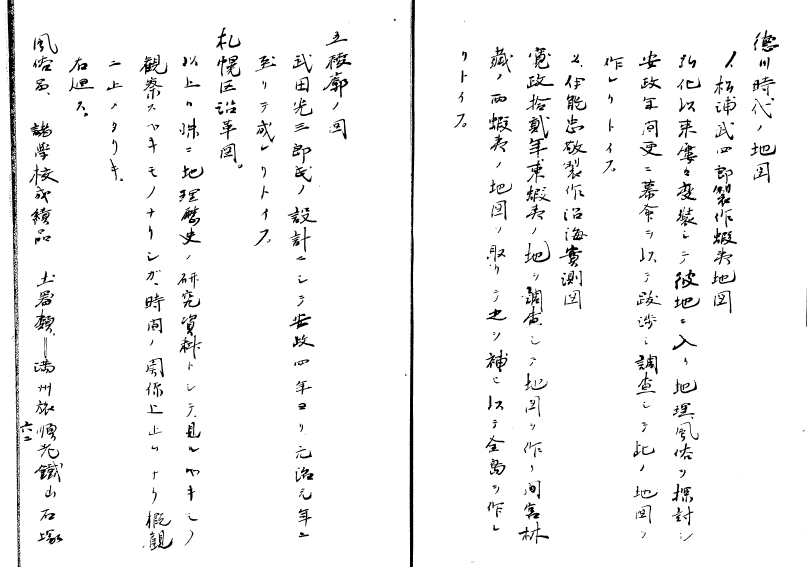 徳川時代ノ地図
1、松浦武四郎製作蝦夷地図
弘化以来屡々変装シテ彼地ニ入リ地理、風俗ヲ探討シ
安政年間更ニ幕命ヲ以テ跋渉シ調査シテ此ノ地図ヲ
作レリトイフ。
2、伊能忠敬製作沿海実測図
寛政拾弐年東蝦夷ノ地ヲ調査シテ地図ヲ作リ間宮林
蔵ノ西蝦夷ノ地図ヲ取リテ之ヲ補ヒ以テ全島ヲ作レ
リトイフ。
五稜廓ノ図
武田光三郎氏ノ設計ニシテ安政四年ヨリ元治元年ニ
至リテ成レリトイフ。
札幌区沿革図。
以上ハ殊ニ地理歴史ノ研究資料トシテ見ルベキモノ
観察スベキモノナリシガ、時間ノ関係上止ムナリ概観
ニ止ノタリキ。
右廻ス。
風俗品、諸学校成績品 土器類=満州旅順老鉄山石塚
六二